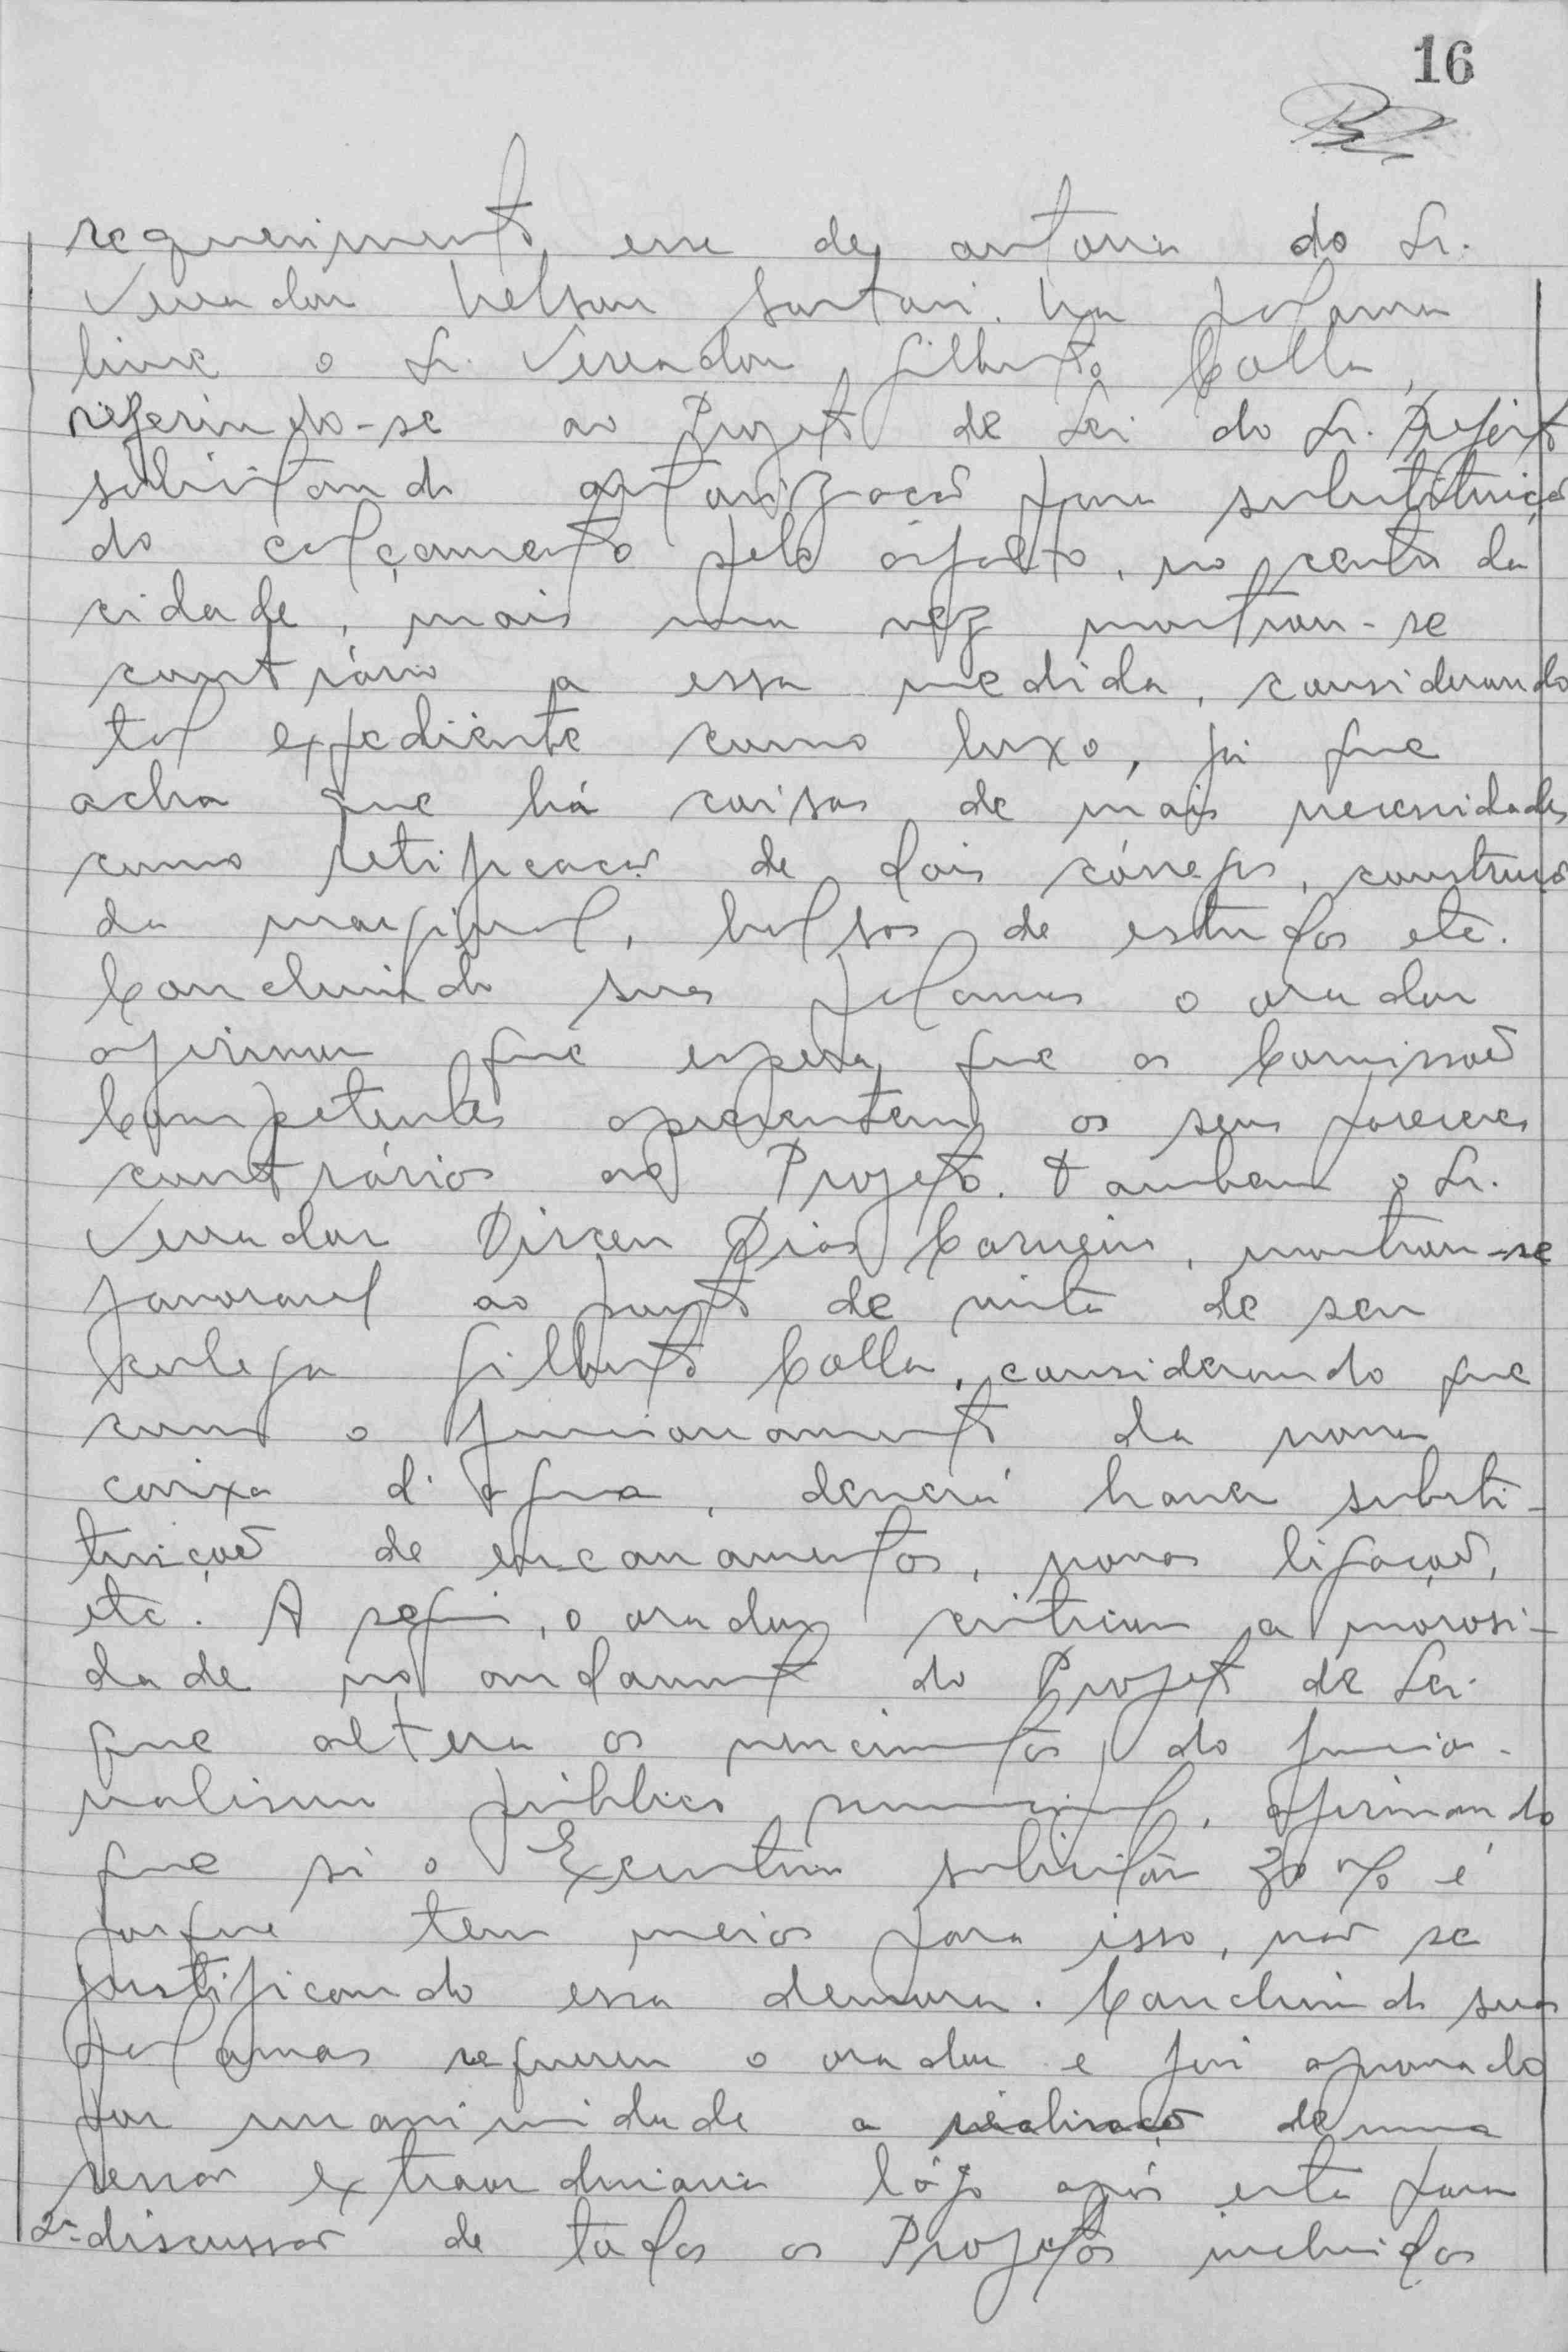 16
requerimento esse de autoria do Sr.
Vereador Nelson Sartori. Na palavra
livre o Sr. Vereador Gilberto Colla,
referindo-se ao Projeto de Lei do Sr. Prefeito
solicitando autorização para substituição
do calçamento pelo asfalto, no centro da
cidade, mais uma vez mostrou-se
contrário a essa medida, considerando
tal expediente como luxo, já que
acha que há coisas de mais necessidades
como retificação de dois córregos, construção
da marginal, bolsas de estudos etc.
Concluindo suas palavras o orador
afirmou que espera que as Comissões
Competentes apresentem os seus pareceres
contrários ao Projeto. Tambem o Sr.
Vereador Dirceu Dias Carneiro, mostrou-se
favoravel ao ponto de vista de seu
colega Gilberto Colla, considerando que
com o funcionamento da nova
caixa d'agua, deverá haver substi-
tuição de encanamentos, novas ligações,
etc. A seguir, o orador criticou a morosi-
dade no andamento do Projeto de Lei
que altera os vencimentos do funcio-
nalismo público municipal, afirmando
que si o Executivo solicitou 30% é
porque tem meios para isso, não se
justificando essa demora. Concluindo suas
palavras requereu o orador e foi aprovado
por unanimidade a realisação de uma
sessão extraordinaria lógo após esta para
2ª discussão de todos os Projetos incluidos